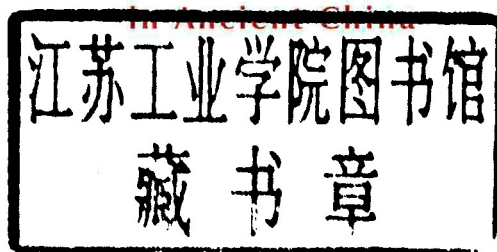 in Ancient China
江苏工业学院图书馆
藏书章